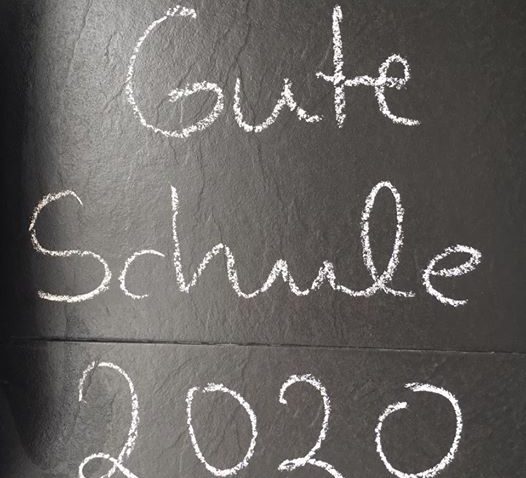 Gute
Schule
2020